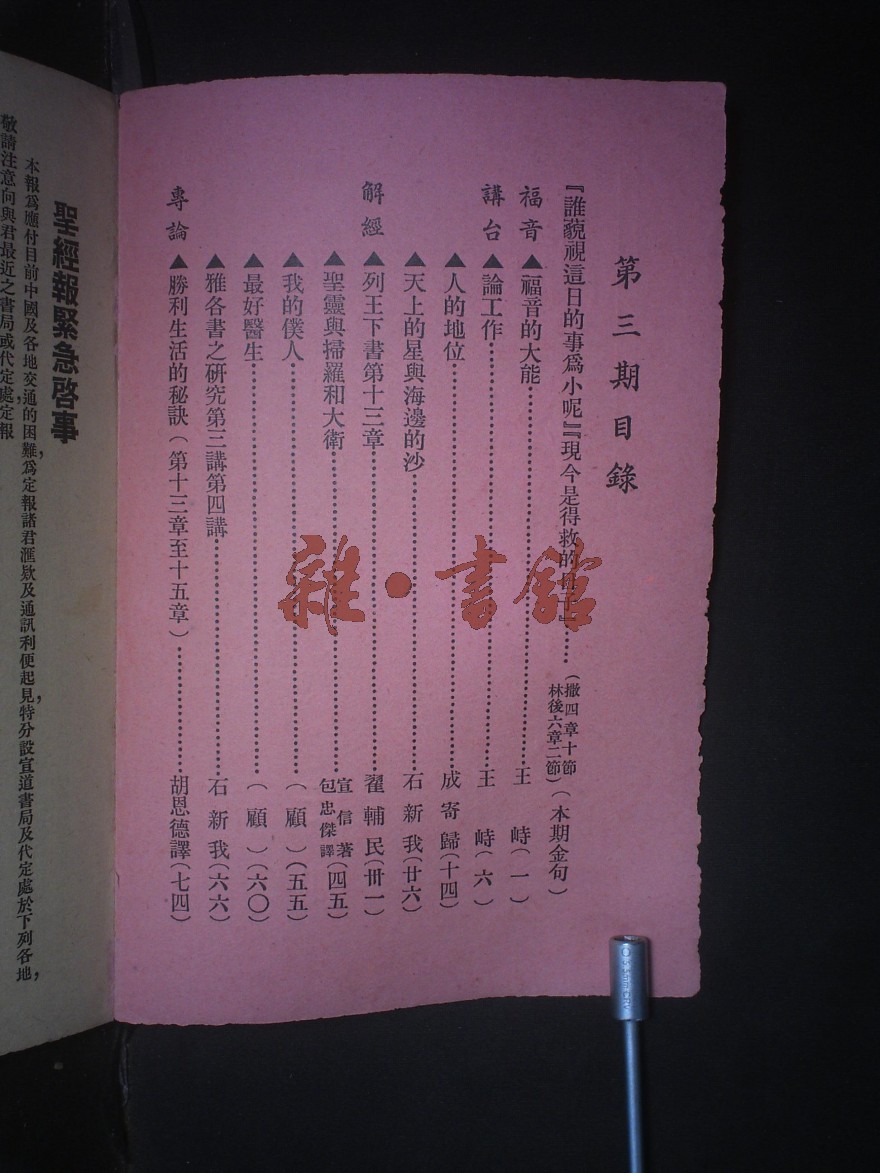 第三期目錄
『誰藐視這日的事爲小呢』『現今是得救的日子』……(撒四章十節 林後六章二節)(本期金句)
福音▲福音的大能……王 峙(一)
講台▲論工作……王 峙(六)
▲人的地位……成寄歸(十四)
▲天上的星與海邊的沙……石新我(廿六)
解經▲列王下書第十三章……翟輔民(卅一)
▲聖靈與掃羅和大衛……宣信著 包忠傑譯(四五)
▲我的僕人……(顧)(五五)
▲最好醫生……(顧)(六〇)
▲雅各書之研究第三講第四講……石新我(六六)
專論▲勝利生活的秘訣(第十三章至十五章)……胡恩德譯(七四)
聖經報緊急啓事
本報爲應付目前中國及各地交通的困難,爲定報諸君滙欵及通訊利便起見,特分設宣道書局及代定處於下列各地,
敬請注意向與君最近之書局或代定處定報
雜·書館